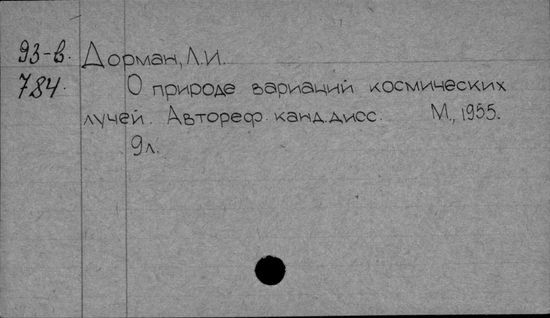 93-в. Дорман, Л.И.
784. О природе вариаций космических
лучей. Автореф. канд. дисс. М., 1955.
9л.